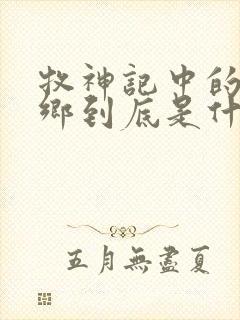 牧神記中的
鄉到底是什
五月無盡夏